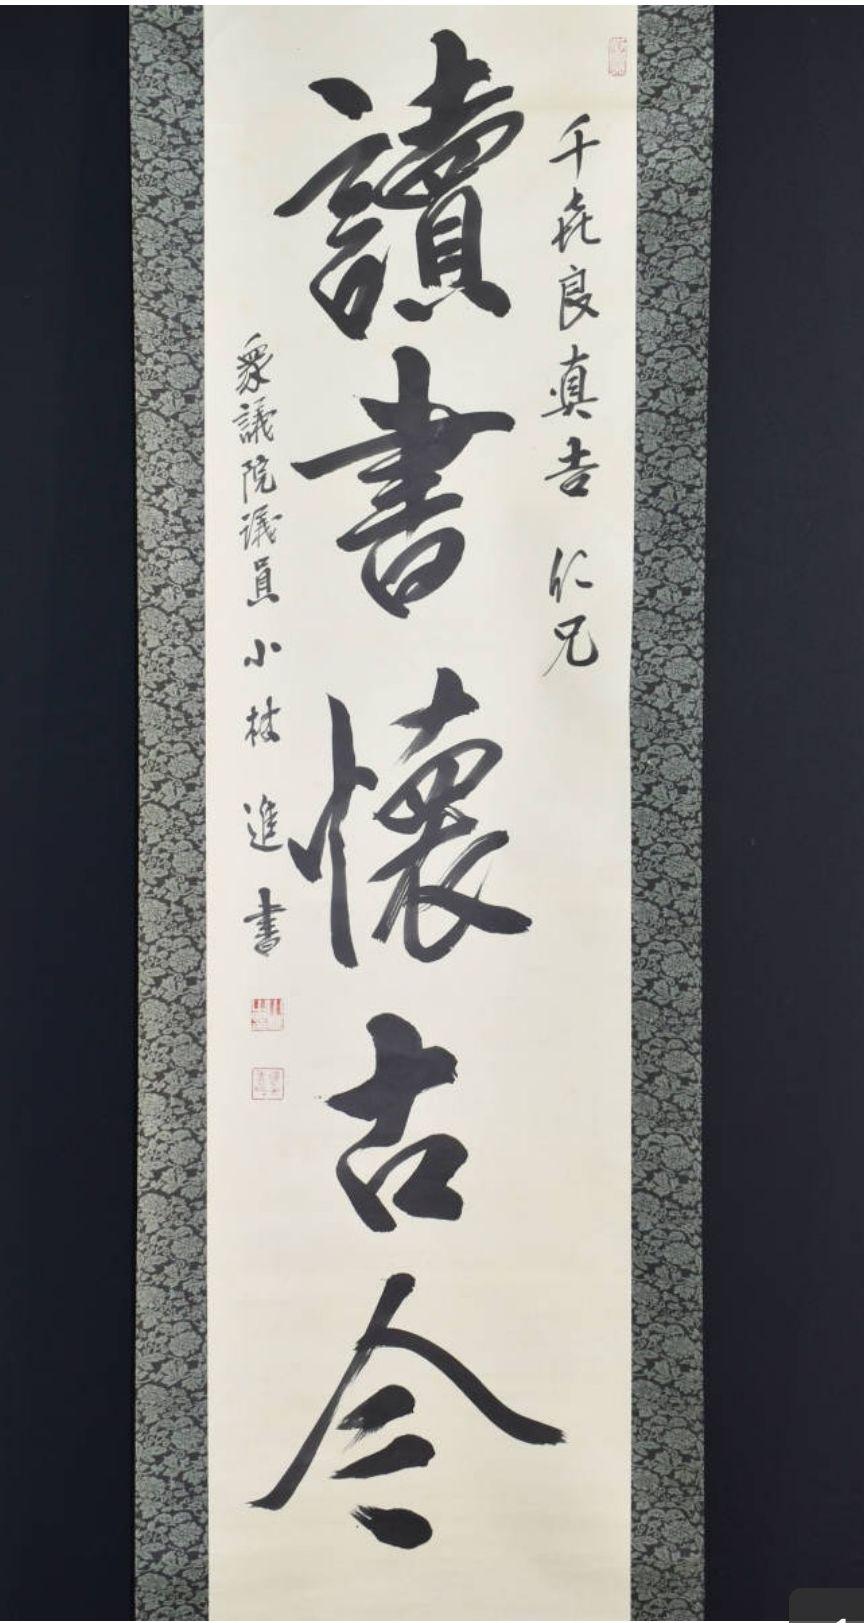 千㐂良真吉 仁兄
讀書懐古今
衆議院議員 小林 進 書